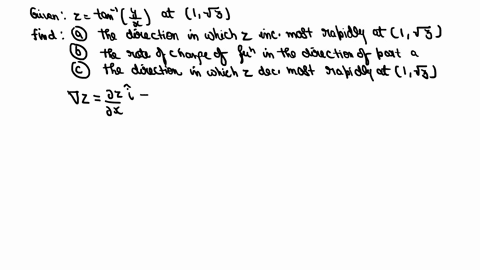 Given: z = tan⁻¹(y/x) at (1, √3)
find: ⓐ the direction in which z inc. most rapidly at (1, √3)
ⓑ the rate of change of fuⁿ in the direction of part a
ⓒ the direction in which z dec. most rapidly at (1, √3)
∇z = ∂z/∂x î −